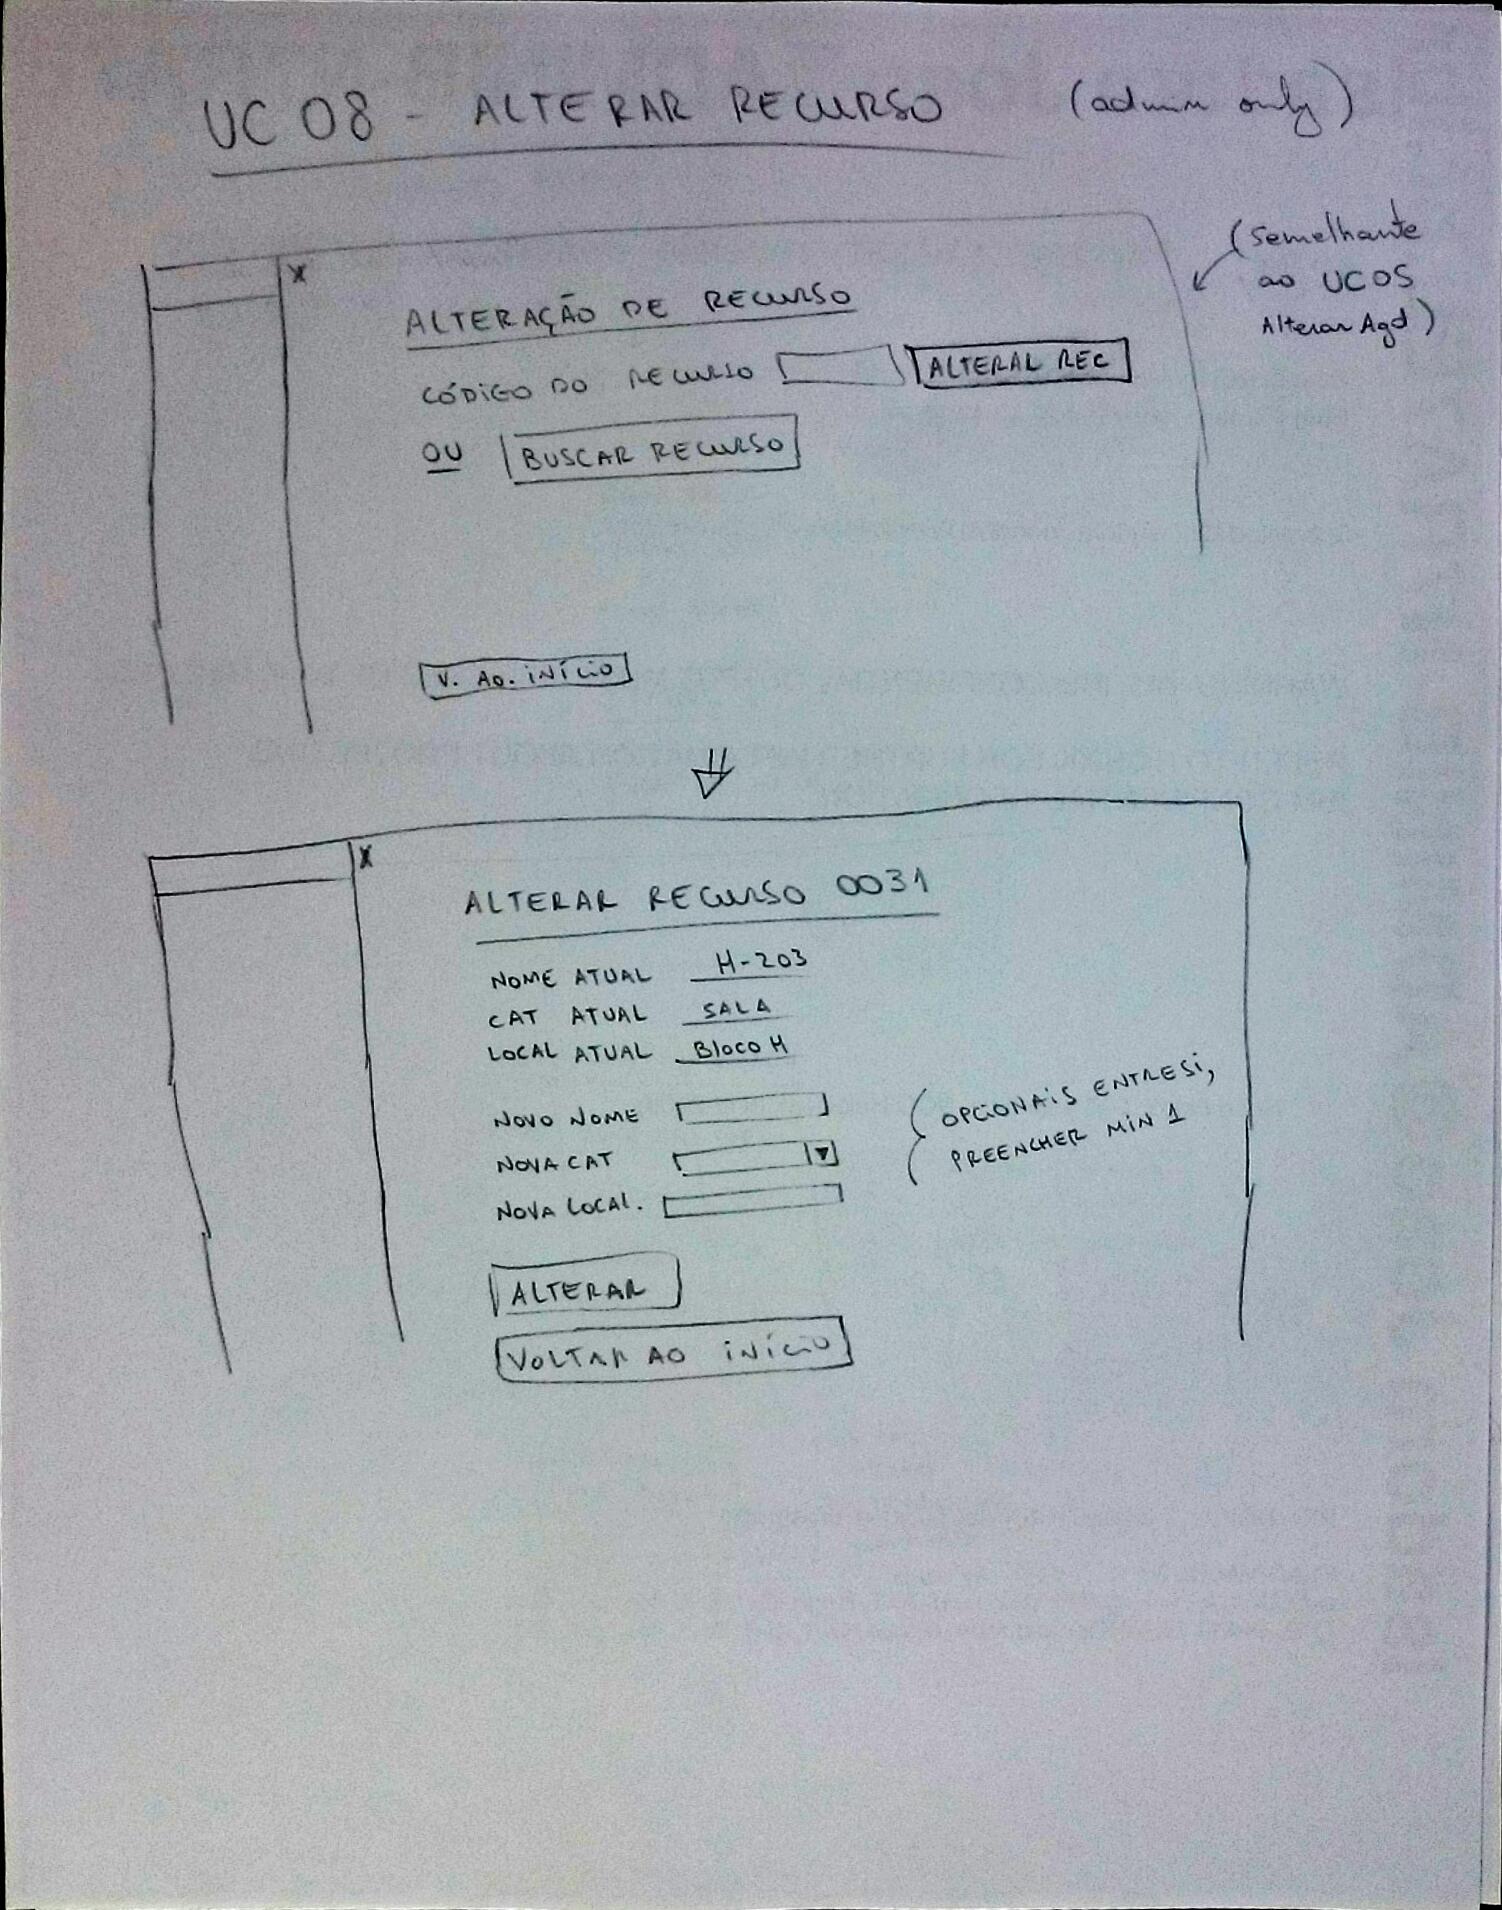 UC 08 - ALTERAR RECURSO (admin only)
(semelhante
ao UC05
Alterar Agd)
X
ALTERAÇÃO DE RECURSO
CÓDIGO DO RECURSO ALTERAL REC
OU BUSCAR RECURSO
V. AO. INÍCIO
X
ALTERAR RECURSO 0031
NOME ATUAL H-203
CAT ATUAL SALA
LOCAL ATUAL Bloco H
NOVO NOME
NOVA CAT
NOVA LOCAL.
(OPCIONAIS ENTRE SI,
PREENCHER MIN 1
ALTERAR
VOLTAR AO INÍCIO